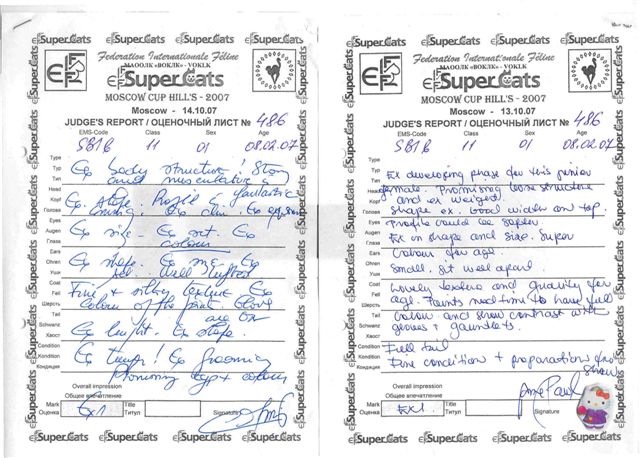 SuperCats SuperCats SuperCats SuperCats
Federation Internationale Féline
МАООЛК «ВОКЛК» - VOKLK
FIFe
SuperCats
MOSCOW CUP HILL'S - 2007
Moscow - 14.10.07
JUDGE'S REPORT / ОЦЕНОЧНЫЙ ЛИСТ № 486
EMS-Code Class Sex Age
11 01 08.02.07
Type Typ Тип
Ex body structure! Strong
and musculature
Head Kopf Голова
Ex shape. Profile is fantastic
Ex chin. Ex
Eyes Augen Глаза
Ex size. Ex set. Ex
colour
Ears Ohren Уши
Ex shape. Ex
set. Well tufted
Coat Fell Шерсть
Fine & silky texture Ex
Colour of the
Tail Schwanz Хвост
Ex lenght. Ex shape.
Condition Kondition Кондиция
Ex temper! Ex grooming
Promising type + colour
Overall impression
Общее впечатление
Mark Оценка Ex1 Title Титул Signature
SuperCats SuperCats SuperCats SuperCats
SuperCats SuperCats SuperCats SuperCats
Federation Internationale Féline
МАООЛК «ВОКЛК» - VOKLK
FIFe
SuperCats
MOSCOW CUP HILL'S - 2007
Moscow - 13.10.07
JUDGE'S REPORT / ОЦЕНОЧНЫЙ ЛИСТ № 486
EMS-Code Class Sex Age
11 01 08.02.07
Type Typ Тип
Ex developing phase for this junior
female. Promising bone structure
and ex weight
Head Kopf Голова
shape ex. Good width on top.
Profile could be softer.
Eyes Augen Глаза
Ex in shape and size. Super
colour for age.
Ears Ohren Уши
Small. Set well apart
Coat Fell Шерсть
Lovely texture and quality for
age. Points need time to have full
colour and show contrast with
gloves + gauntlets.
Tail Schwanz Хвост
Full tail
Condition Kondition Кондиция
Fine condition + preparation for
show
Overall impression
Общее впечатление
Mark Оценка Ex1. Title Титул Signature
SuperCats SuperCats SuperCats SuperCats